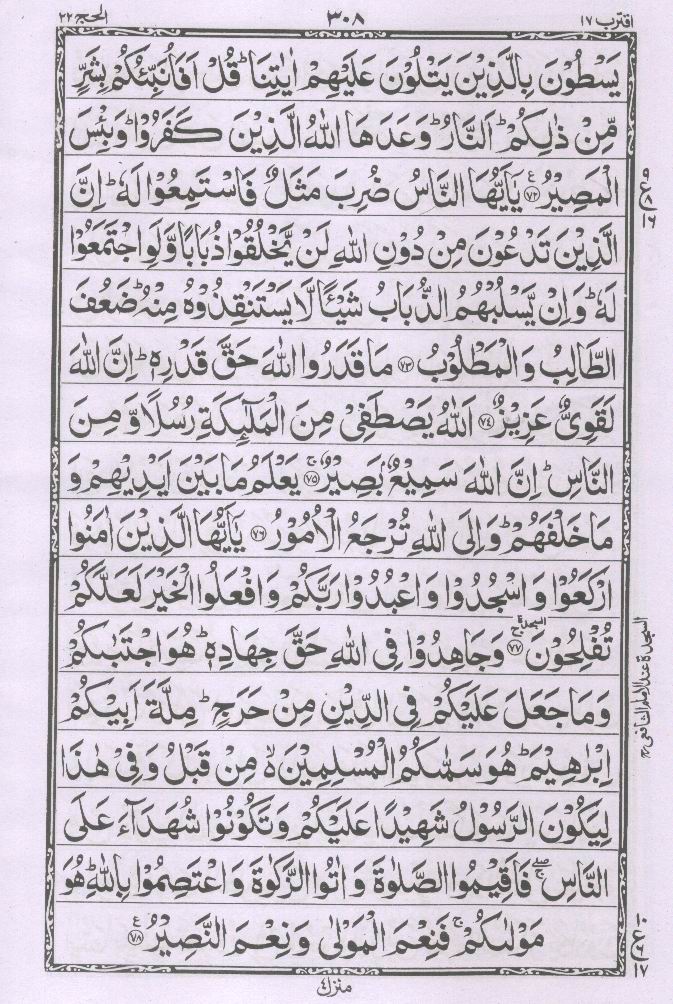 اقترب ١٧
٣٠٨
الحج ٢٢
يَسْطُوْنَ بِالَّذِيْنَ يَتْلُوْنَ عَلَيْهِمْ اٰيٰتِنَا ؕ قُلْ اَفَاُنَبِّئُكُمْ بِشَرٍّ
مِّنْ ذٰلِكُمْ ؕ اَلنَّارُ ؕ وَعَدَهَا اللّٰهُ الَّذِيْنَ كَفَرُوْا ؕ وَبِئْسَ
الْمَصِيْرُ ۧ‏﴿۷۲﴾ يٰۤاَيُّهَا النَّاسُ ضُرِبَ مَثَلٌ فَاسْتَمِعُوْا لَهٗ ؕ اِنَّ
الَّذِيْنَ تَدْعُوْنَ مِنْ دُوْنِ اللّٰهِ لَنْ يَّخْلُقُوْا ذُبَابًا وَّلَوِ اجْتَمَعُوْا
لَهٗ ؕ وَاِنْ يَّسْلُبْهُمُ الذُّبَابُ شَيْـًٔا لَّا يَسْتَنْقِذُوْهُ مِنْهُ ؕ ضَعُفَ
الطَّالِبُ وَالْمَطْلُوْبُ ﴿۷۳﴾ مَا قَدَرُوا اللّٰهَ حَقَّ قَدْرِهٖ ؕ اِنَّ اللّٰهَ
لَقَوِىٌّ عَزِيْزٌ ﴿۷۴﴾ اَللّٰهُ يَصْطَفِىْ مِنَ الْمَلٰٓئِكَةِ رُسُلًا وَّمِنَ
النَّاسِ ؕ اِنَّ اللّٰهَ سَمِيْعٌۢ بَصِيْرٌ ۚ‏﴿۷۵﴾ يَعْلَمُ مَا بَيْنَ اَيْدِيْهِمْ وَ
مَا خَلْفَهُمْ ؕ وَاِلَى اللّٰهِ تُرْجَعُ الْاُمُوْرُ ﴿۷۶﴾ يٰۤاَيُّهَا الَّذِيْنَ اٰمَنُوا
ارْكَعُوْا وَاسْجُدُوْا وَاعْبُدُوْا رَبَّكُمْ وَافْعَلُوا الْخَيْرَ لَعَلَّكُمْ
تُفْلِحُوْنَ ۚ ﴿۷۷﴾ السجدة وَجَاهِدُوْا فِى اللّٰهِ حَقَّ جِهَادِهٖ ؕ هُوَ اجْتَبٰىكُمْ
وَمَا جَعَلَ عَلَيْكُمْ فِى الدِّيْنِ مِنْ حَرَجٍ ؕ مِلَّةَ اَبِيْكُمْ
اِبْرٰهِيْمَ ؕ هُوَ سَمّٰىكُمُ الْمُسْلِمِيْنَ ۙ مِنْ قَبْلُ وَفِىْ هٰذَا
لِيَكُوْنَ الرَّسُوْلُ شَهِيْدًا عَلَيْكُمْ وَتَكُوْنُوْا شُهَدَآءَ عَلَى
النَّاسِ ۖۚ فَاَقِيْمُوا الصَّلٰوةَ وَاٰتُوا الزَّكٰوةَ وَاعْتَصِمُوْا بِاللّٰهِ ؕ هُوَ
مَوْلٰىكُمْ ۚ فَنِعْمَ الْمَوْلٰى وَنِعْمَ النَّصِيْرُ ﴿۷۸﴾ ع
ع ٩ ٨ ١٦
السجدة عند الامام الشافعي
ع ١٠ ٦ ١٧
منزل ٤